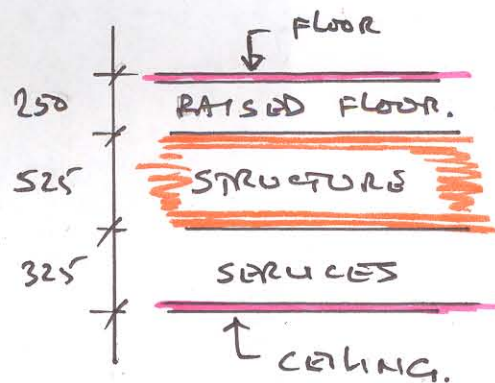 FLOOR
250 RAISED FLOOR.
525 STRUCTURE
325 SERVICES
CEILING.